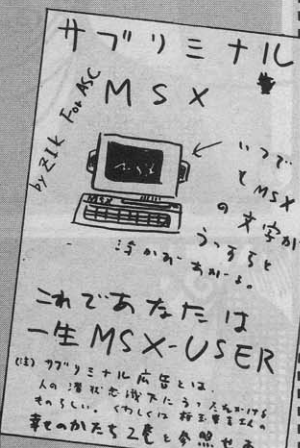 サブリミナル
MSX
by ZIK For ASC
いつで
もMSX
の文字が
うっすらと
浮かぶ
MSX
これであなたは
一生MSX-USER
(注)サブリミナル広告とは、
人の潜在意識下にうったえかける
ものらしい。くわしくは
幸せのかたち2巻を参照せよ